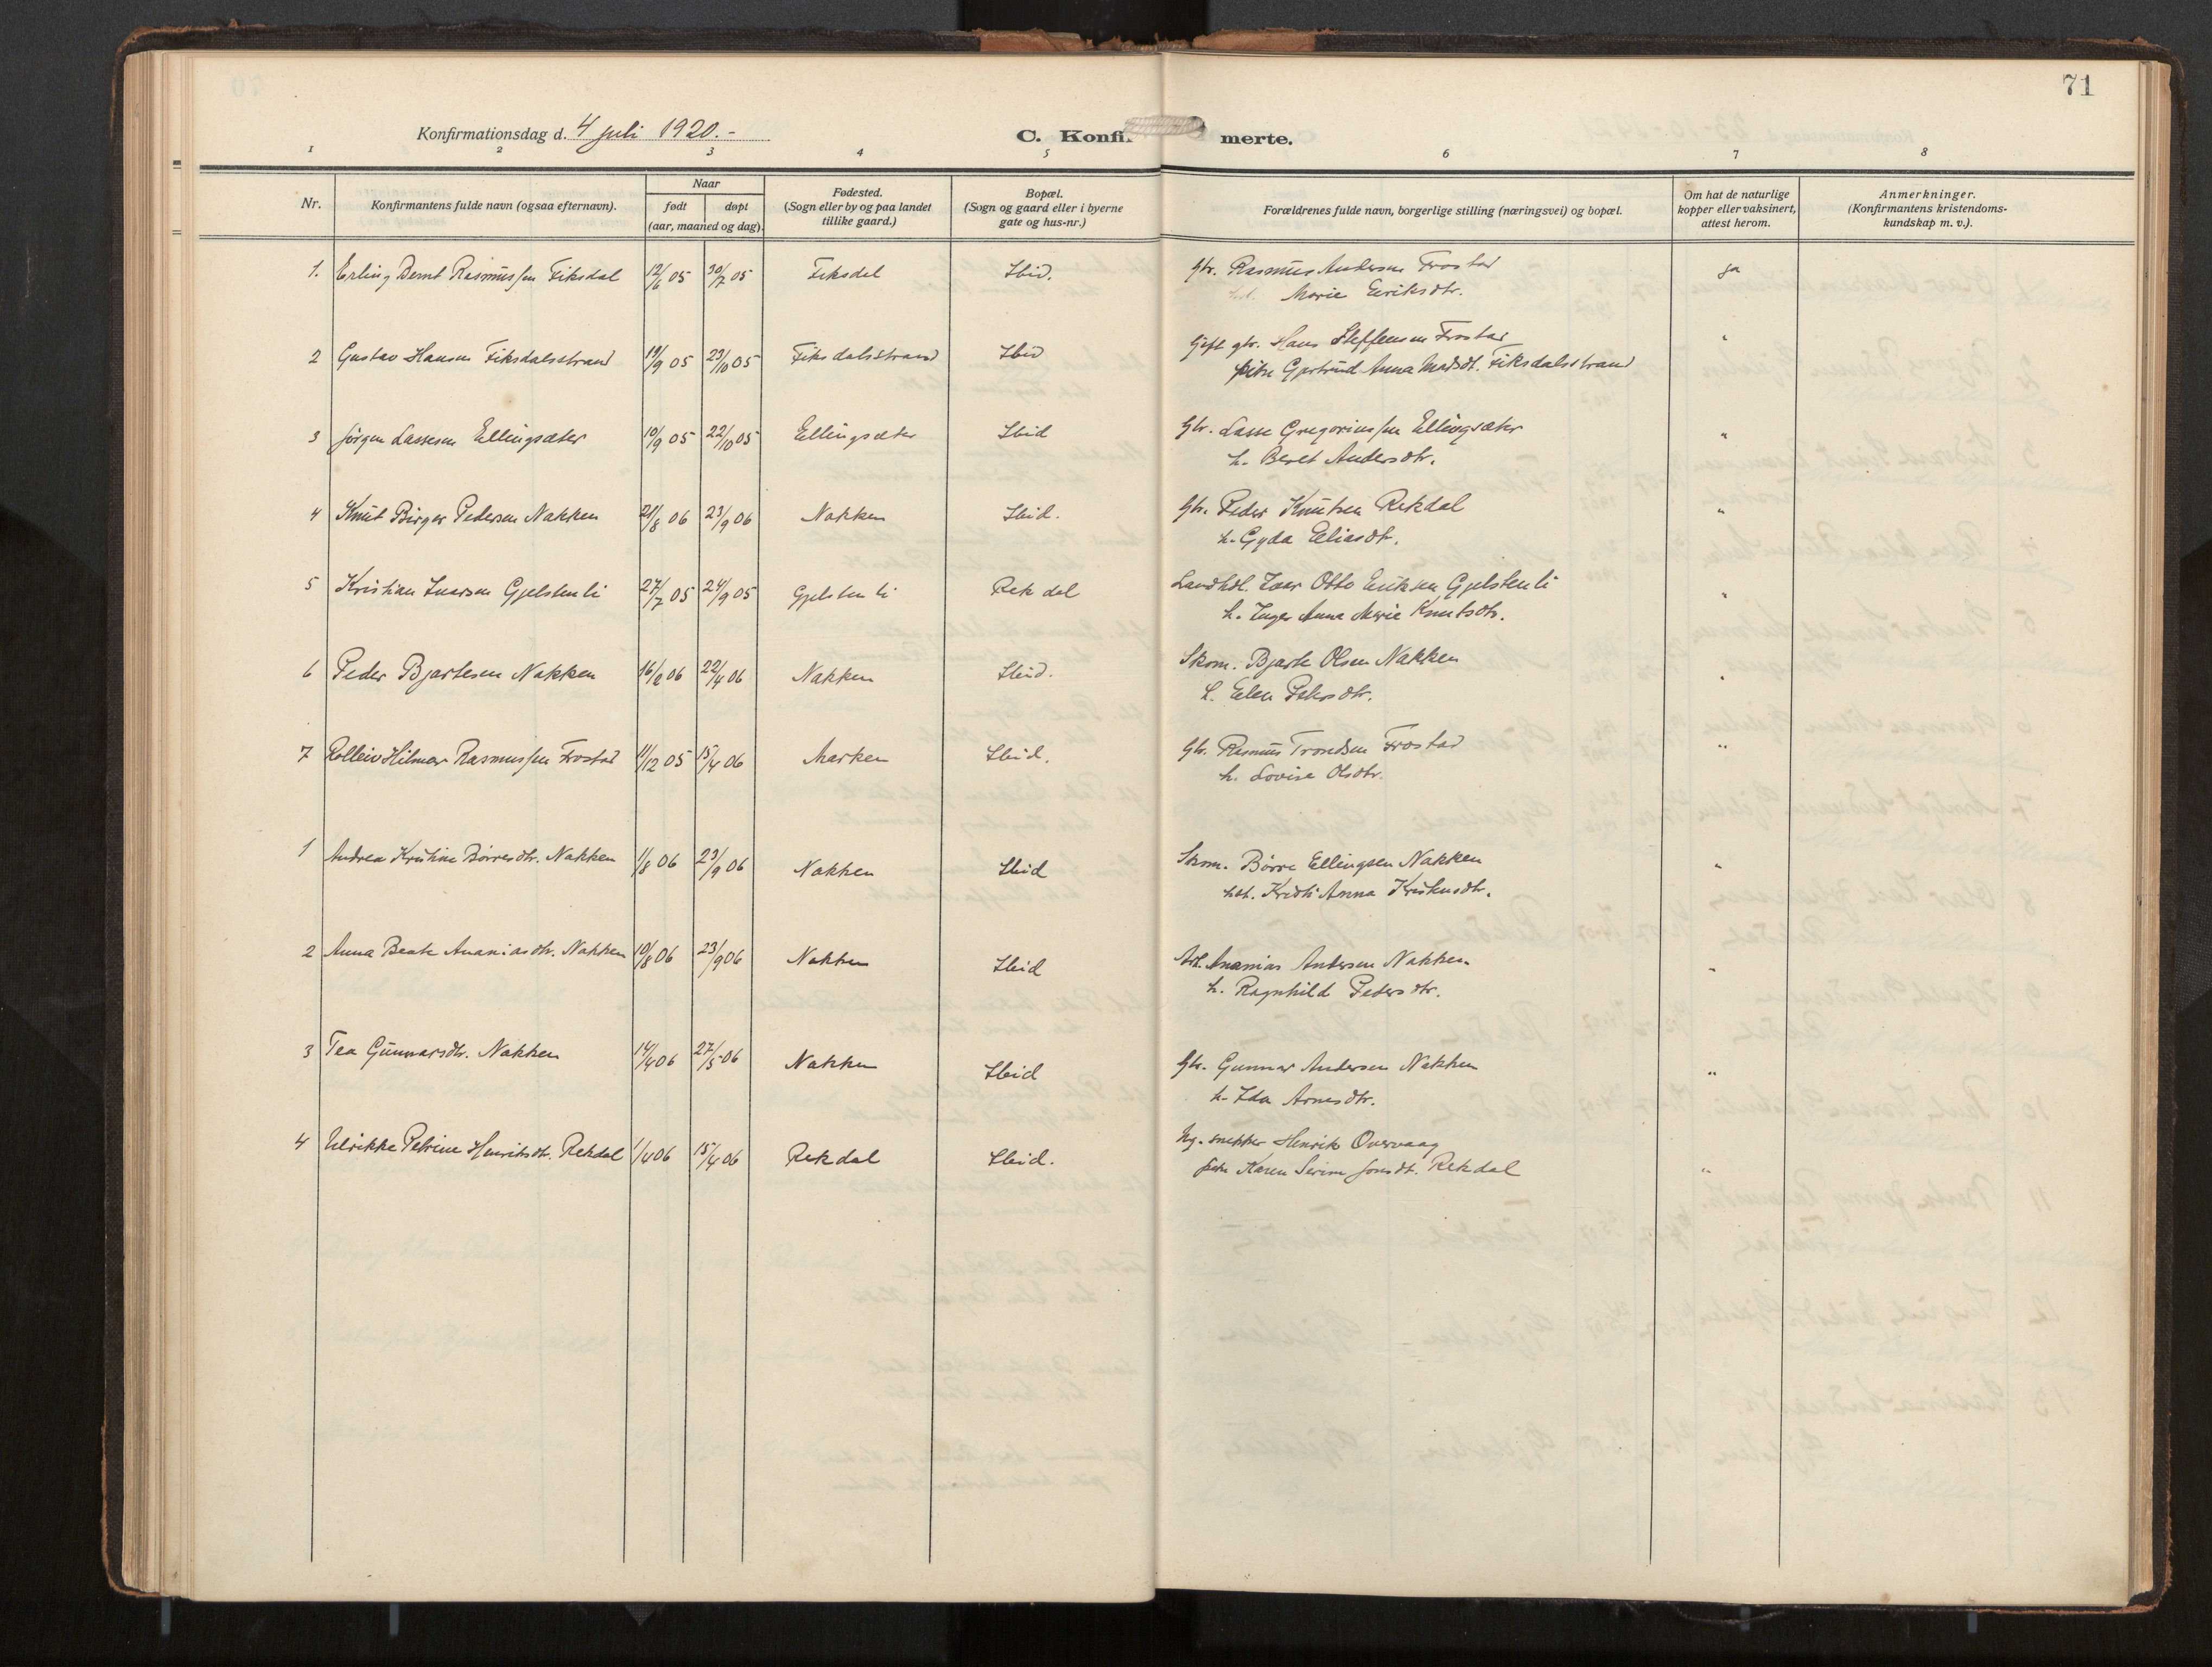 71
Konfirmationsdag d. 4 juli 1920.-
C. Konfir merte.
1 2 3 4 5 6 7 8
Nr.
Konfirmantens fulde navn (ogsaa efternavn).
Naar
født døpt
(aar, maaned og dag).
Fødested.
(Sogn eller by og paa landet
tillike gaard.)
Bopæl.
(Sogn og gaard eller i byerne
gate og hus-nr.)
Forældrenes fulde navn, borgerlige stilling (næringsvei) og bopæl.
Om hat de naturlige
kopper eller vaksinert,
attest herom.
Anmerkninger.
(Konfirmantens kristendoms-
kundskap m. v.).
1. Erling Bernt Rasmussen Fiksdal 12/6 05 30/7 05 Fiksdal Ibid. Gbr. Rasmus Andersen Frostad ja
Marie Eriksdtr.
2 Gustav Hansen Fiksdalsstrand 19/9 05 29/10 05 Fiksdalsstrand Ibid Gift gbr. Hans Steffensen Frostad "
Gjertrud Anna Madsdt. Fiksdalsstrand
3 Jörgen Lassesen Ellingsæter 10/9 05 22/10 05 Ellingsæter Ibid Gbr. Lasse Gregoriussen Ellingsæter "
h. Beret Andersdtr.
4 Knut Birger Pedersen Nakken 21/8 06 23/9 06 Nakken Ibid. Gbr. Peder Knutsen Rekdal "
h. Gyda Eliasdt.
5 Kristian Ivarsen Gjelstenli 27/7 05 24/9 05 Gjelstenli Rekdal Landhdl. Ivar Otto Eriksen Gjelstenli "
h. Inger Anna Marie Knutsdtr.
6 Peder Bjartesen Nakken 16/2 06 22/4 06 Nakken Ibid. Skom. Bjarte Olsen Nakken "
h. Elen Petersdtr.
7 Rolleiv Hilmar Rasmussen Frostad 11/12 05 15/4 06 Marken Ibid. Gbr. Rasmus Trondsen Frostad "
h. Lovise Olsdtr.
1 Andrea Kristine Børresdtr. Nakken 1/8 06 23/9 06 Nakken Ibid Skom. Børre Ellingsen Nakken "
hst. Kristi Anna Kristensdtr.
2 Anna Beate Ananiasdtr. Nakken 10/8 06 23/9 06 Nakken Ibid Arb. Ananias Andersen Nakken "
h. Ragnhild Pedersdtr.
3 Tea Gunnarsdtr. Nakken 14/4 06 27/5 06 Nakken Ibid Gbr. Gunnar Andersen Nakken "
h. Ida Arnesdtr.
4 Ulrikke Petrine Henriksdtr. Rekdal 1/4 06 15/4 06 Rekdal Ibid. Ug. snekker Henrik Overvaag "
Karen Serine Jonsdt. Rekdal